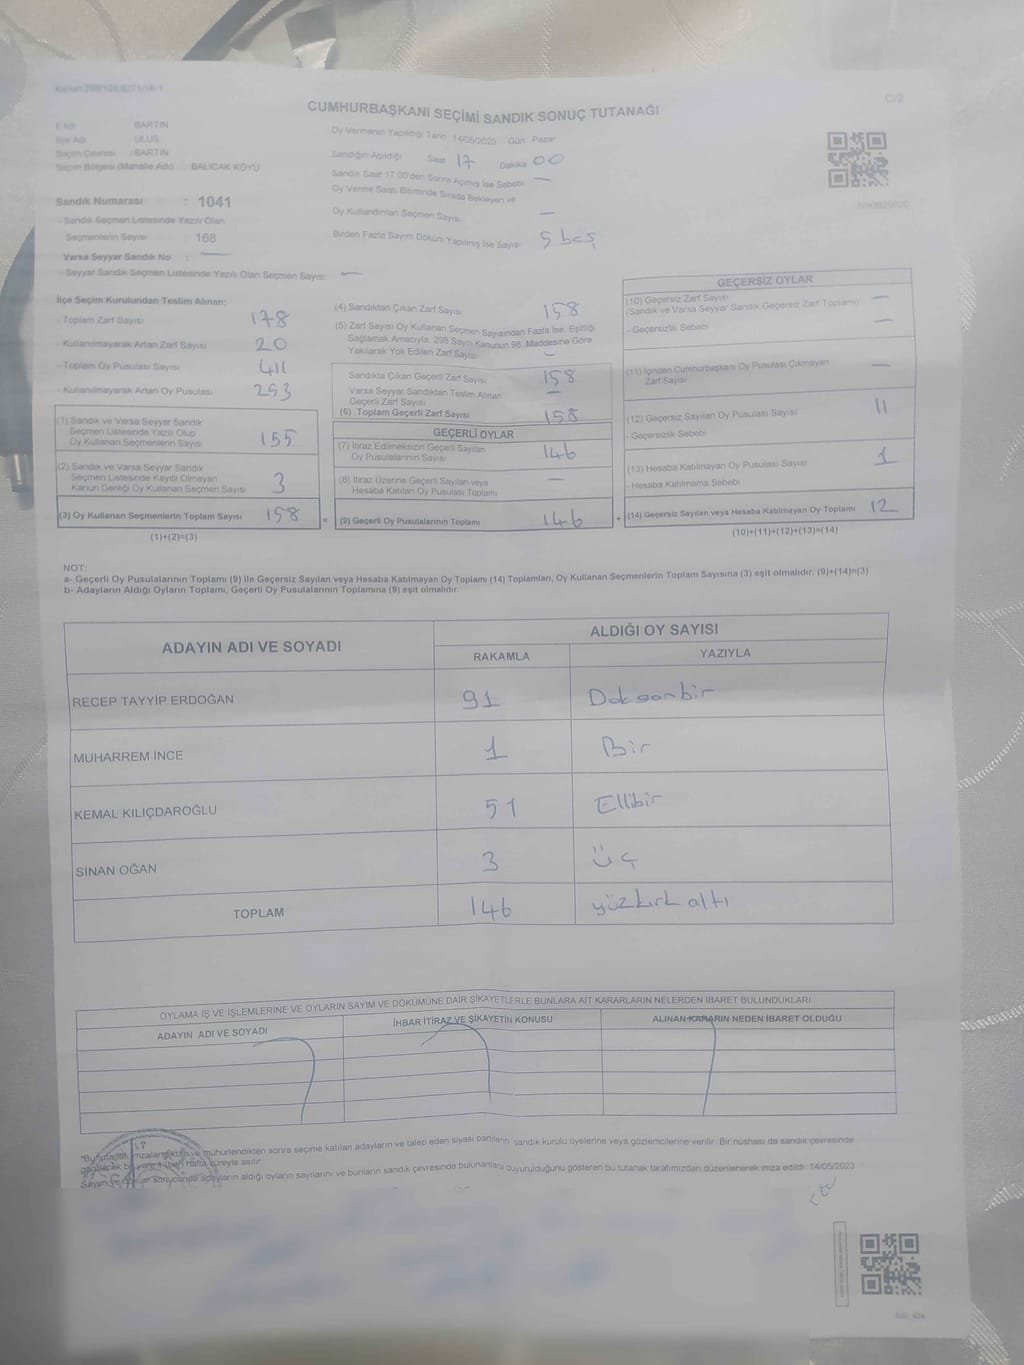 C/2
CUMHURBAŞKANI SEÇİMİ SANDIK SONUÇ TUTANAĞI
İli Adı : BARTIN
İlçe Adı : ULUS
Seçim Çevresi : BARTIN
Seçim Bölgesi (Mahalle Adı) : BALICAK KÖYÜ
Sandık Numarası : 1041
- Sandık Seçmen Listesinde Yazılı Olan
Seçmenlerin Sayısı : 168
Varsa Seyyar Sandık No : —
- Seyyar Sandık Seçmen Listesinde Yazılı Olan Seçmen Sayısı : —
Oy Vermenin Yapıldığı Tarih 14/05/2023 Gün Pazar
Sandığın Açıldığı Saat 17 Dakika 00
Sandık Saat 17.00'den Sonra Açılmış İse Sebebi —
Oy Verme Saati Bitiminde Sırada Bekleyen ve
Oy Kullandırılan Seçmen Sayısı —
Birden Fazla Sayım Döküm Yapılmış İse Sayısı 5 beş
İlçe Seçim Kurulundan Teslim Alınan;
- Toplam Zarf Sayısı 178
- Kullanılmayarak Artan Zarf Sayısı 20
- Toplam Oy Pusulası Sayısı 411
- Kullanılmayarak Artan Oy Pusulası 253
(1) Sandık ve Varsa Seyyar Sandık
Seçmen Listesinde Yazılı Olup
Oy Kullanan Seçmenlerin Sayısı 155
(2) Sandık ve Varsa Seyyar Sandık
Seçmen Listesinde Kayıtlı Olmayan
Kanun Gereği Oy Kullanan Seçmen Sayısı 3
(3) Oy Kullanan Seçmenlerin Toplam Sayısı 158 =
(1)+(2)=(3)
(4) Sandıktan Çıkan Zarf Sayısı 158
(5) Zarf Sayısı Oy Kullanan Seçmen Sayısından Fazla İse, Eşitliği
Sağlamak Amacıyla, 298 Sayılı Kanunun 98. Maddesine Göre
Yakılarak Yok Edilen Zarf Sayısı —
Sandıkta Çıkan Geçerli Zarf Sayısı 158
Varsa Seyyar Sandıktan Teslim Alınan
Geçerli Zarf Sayısı —
(6) Toplam Geçerli Zarf Sayısı 158
GEÇERLİ OYLAR
(7) İtiraz Edilmeksizin Geçerli Sayılan
Oy Pusulalarının Sayısı 146
(8) İtiraz Üzerine Geçerli Sayılan veya
Hesaba Katılan Oy Pusulası Toplamı —
(9) Geçerli Oy Pusulalarının Toplamı 146 +
GEÇERSİZ OYLAR
(10) Geçersiz Zarf Sayısı —
(Sandık ve Varsa Seyyar Sandık Geçersiz Zarf Toplamı)
- Geçersizlik Sebebi —
(11) İçinden Cumhurbaşkanı Oy Pusulası Çıkmayan
Zarf Sayısı —
(12) Geçersiz Sayılan Oy Pusulası Sayısı 11
- Geçersizlik Sebebi
(13) Hesaba Katılmayan Oy Pusulası Sayısı 1
- Hesaba Katılmama Sebebi
(14) Geçersiz Sayılan veya Hesaba Katılmayan Oy Toplamı 12
(10)+(11)+(12)+(13)=(14)
NOT:
a- Geçerli Oy Pusulalarının Toplamı (9) ile Geçersiz Sayılan veya Hesaba Katılmayan Oy Toplamı (14) Toplamları, Oy Kullanan Seçmenlerin Toplam Sayısına (3) eşit olmalıdır. (9)+(14)=(3)
b- Adayların Aldığı Oyların Toplamı, Geçerli Oy Pusulalarının Toplamına (9) eşit olmalıdır.
ADAYIN ADI VE SOYADI ALDIĞI OY SAYISI
RAKAMLA YAZIYLA
RECEP TAYYİP ERDOĞAN 91 Doksanbir
MUHARREM İNCE 1 Bir
KEMAL KILIÇDAROĞLU 51 Ellibir
SİNAN OĞAN 3 üç
TOPLAM 146 yüzkırk altı
OYLAMA İŞ VE İŞLEMLERİNE VE OYLARIN SAYIM VE DÖKÜMÜNE DAİR ŞİKAYETLERLE BUNLARA AİT KARARLARIN NELERDEN İBARET BULUNDUKLARI
ADAYIN ADI VE SOYADI İHBAR İTİRAZ VE ŞİKAYETİN KONUSU ALINAN KARARIN NEDEN İBARET OLDUĞU
mühürlendikten sonra seçime katılan adayların ve talep eden siyasi partilerin sandık kurulu üyelerine veya gözlemcilerine verilir. Bir nüshası da sandık çevresinde
bir hafta süreyle asılır.
Sayım ve döküm sonucunda adayların aldığı oyların sayılarını ve bunların sandık çevresinde bulunanlara duyurulduğunu gösteren bu tutanak tarafımızdan düzenlenerek imza edildi. 14/05/2023